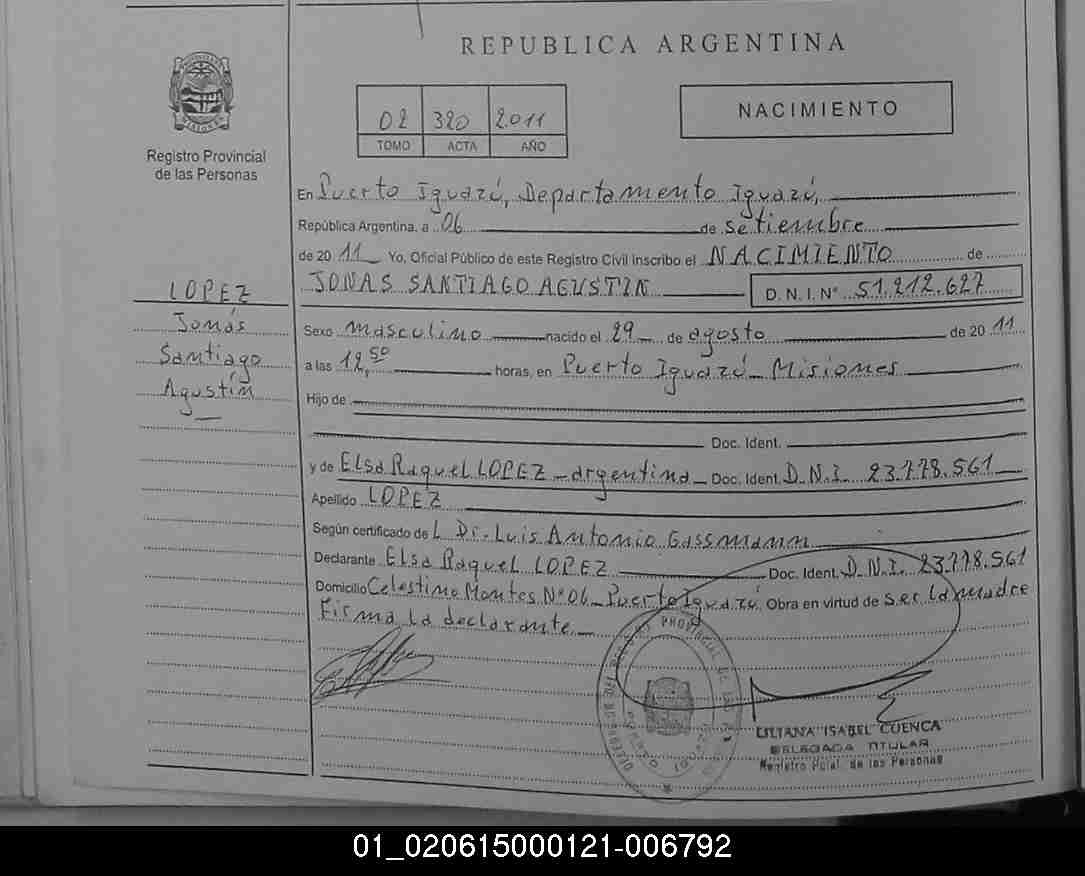 REPUBLICA ARGENTINA
Registro Provincial
de las Personas
02 320 2011
TOMO ACTA AÑO
NACIMIENTO
En Puerto Iguazú, Departamento Iguazú,
República Argentina, a 06 de setiembre
de 2011 Yo, Oficial Público de este Registro Civil Inscribo el NACIMIENTO de
JONAS SANTIAGO AGUSTIN D.N.I. Nº 51.212.627
LOPEZ
Jonás
Santiago
Agustín
Sexo masculino nacido el 29 de agosto de 2011
a las 12,50 horas, en Puerto Iguazú - Misiones
Hijo de
Doc. Ident.
y de Elsa Raquel LOPEZ - argentina - Doc. Ident. D.N.I. 23.778.561
Apellido LOPEZ
Según certificado de L Dr. Luis Antonio Gassmann
Declarante Elsa Raquel LOPEZ Doc. Ident. D.N.I. 23.778.561
Domicilio Celestino Montes Nº 06 - Puerto Iguazú. Obra en virtud de ser la madre
Firma la declarante -
LILIANA ISABEL CUENCA
DELEGADA TITULAR
Registro Pcial. de las Personas
01_020615000121-006792